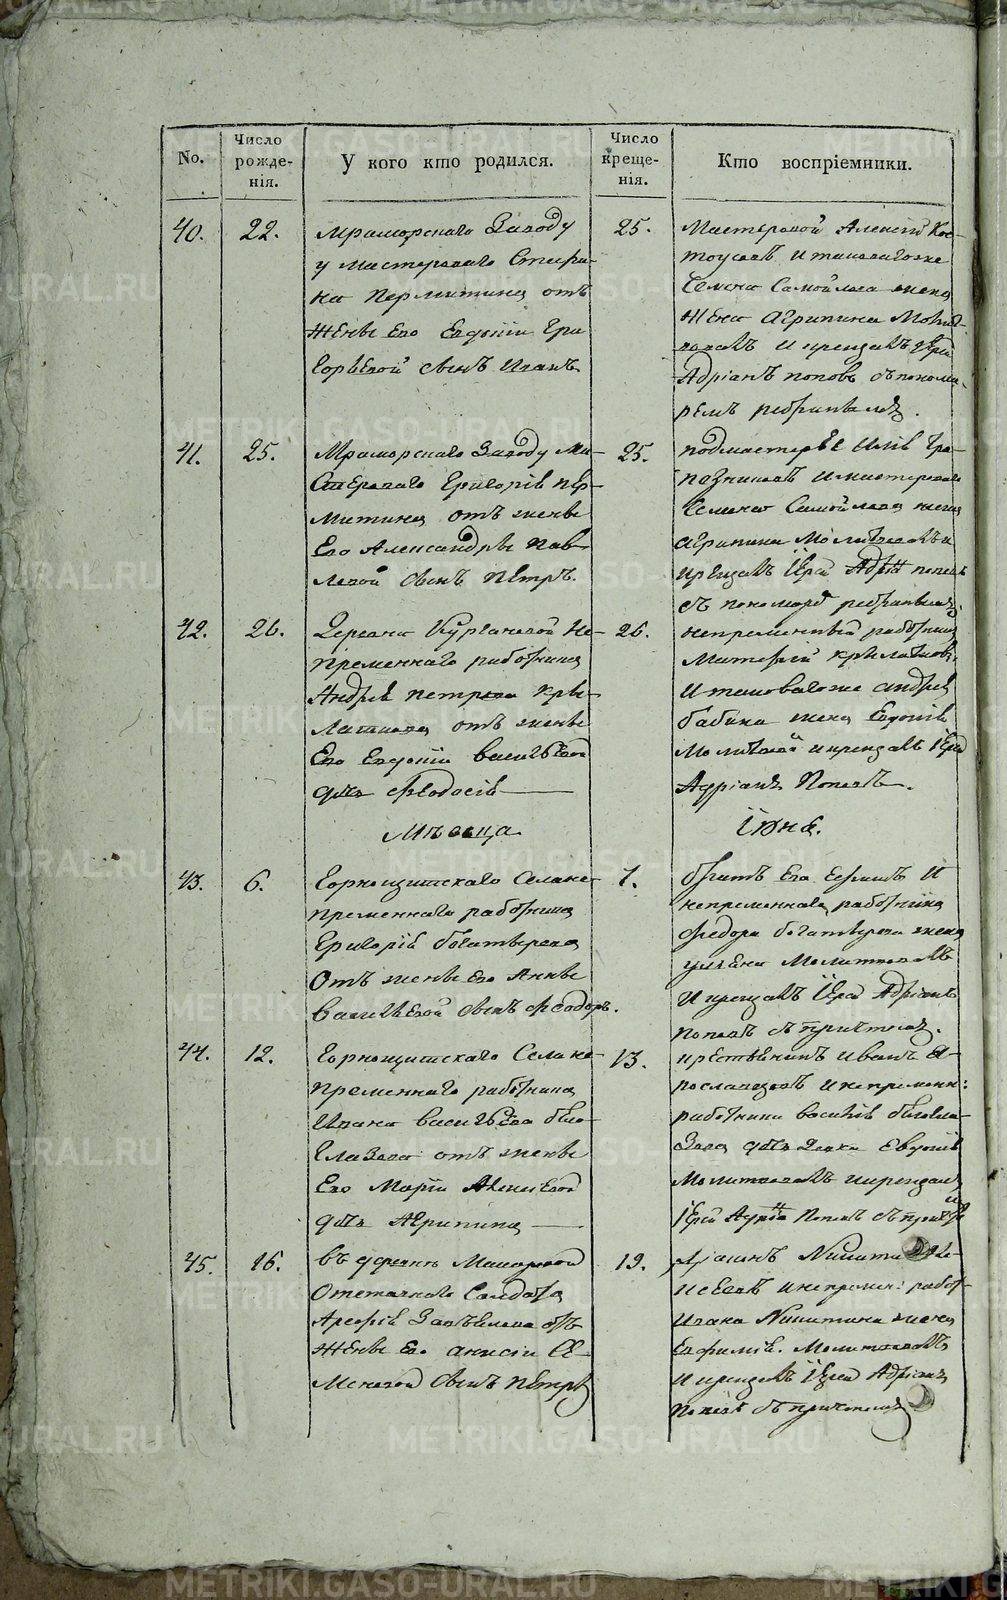 No.
Число рожде-нія.
У кого кто родился.
Число креще-нія.
Кто воспріемники.
40.
22.
Мраморскаго Заводу
у мастероваго Стефа-
на Пермитина отъ
Жены Его Евдокіи Гри
Горьевой сынъ Иванъ
25.
Мастеровой Алексей Кос-
тоусовъ и таковагоже
Семена Самойлова
Жена Агрипина Молит-
вовалъ и крещалъ Іерей
Адріанъ Поповъ съ понома-
ремъ
41.
25.
Мраморскаго Заводу Ма-
стероваго Григорія Пер-
митина отъ жены
Его Александры Пав-
ловой сынъ Петръ.
25.
подмастерье
и мастероваго
Семена Самойлова жена
Агрипина Молитвовалъ и
крещалъ Іерей Адріанъ Поповъ
съ пономаремъ
42.
26.
Деревни Кургановой Не-
пременнаго работника
Андрея Петрова Кры-
латкова отъ жены
Его Евдокіи Васильевой
дочь Феодосія
26.
непременный работникъ
Крылатковъ
и таковагоже Андрея
Бабина жена Евдокія
Молитвовалъ и крещалъ Іерей
Адріанъ Поповъ.
Месяца
Іюня.
43.
6.
Горнощитскаго Села не-
пременнаго работника
Григорія Богатырева
Отъ жены Его Анны
Васильевой сынъ Феодоръ.
7.
братъ Его и
непременнаго работника
Федора Богатырева жена
Ульяна Молитвовалъ
И крещалъ Іерей Адріанъ
Поповъ съ причтомъ.
44.
12.
Горнощитскаго Села не-
пременнаго работника
Ивана Васильева Бело-
Глазова отъ жены
Его Маріи Алексеевой
дочь Агрипина
13.
крестьянинъ Иванъ Я-
рославцовъ и непременн:
работника Василія Белогла-
зова дочь девка Евдокія
Молитвовалъ и крещалъ
Іерей Адріанъ Поповъ съ
45.
16.
въ деревне Макаровой
Отставнаго Солдата
Арефія Завьялова отъ
Жены Его Анисіи Се-
меновой сынъ Петръ
19.
Никита
и непремен: работ-
Ивана Никитина жена
Евфимія. Молитвовалъ
И крещалъ Іерей Адріанъ
Поповъ съ причтомъ
METRIKI.GASO-URAL.RU